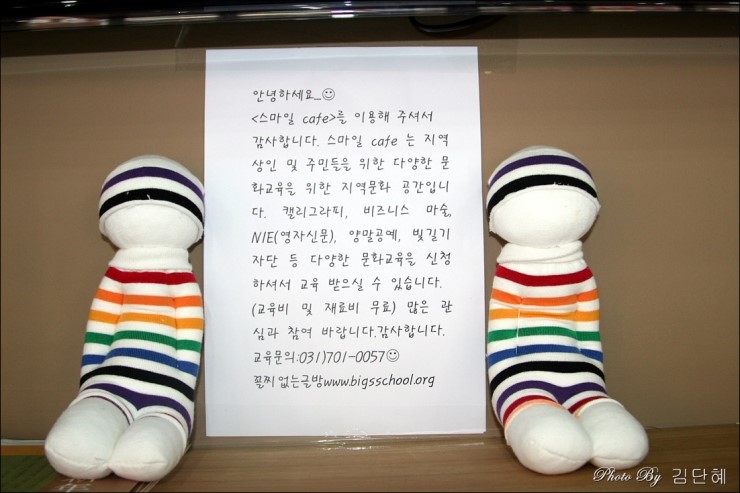 안녕하세요_☺
<스마일 cafe>를 이용해 주셔서
감사합니다. 스마일 cafe 는 지역
상인 및 주민들을 위한 다양한 문
화교육을 위한 지역문화 공간입니
다. 캘리그라피, 비즈니스 마술,
NIE(영자신문), 양말공예, 빛길기
자단 등 다양한 문화교육을 신청
하셔서 교육 받으실 수 있습니다.
(교육비 및 재료비 무료) 많은 관
심과 참여 바랍니다.감사합니다.
교육문의:031)701-0057☺
꼴찌없는글방www.bigsschool.org
Photo By 김단혜